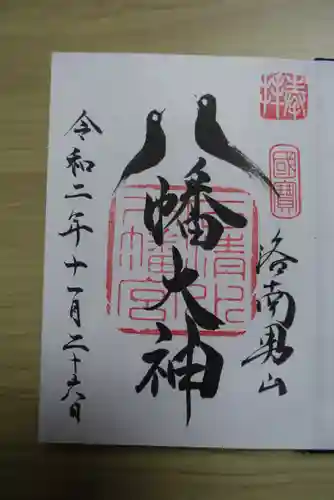 奉拝
國寶
洛南男山
八幡大神
石清水
八幡宮
令和二年十一月二十六日